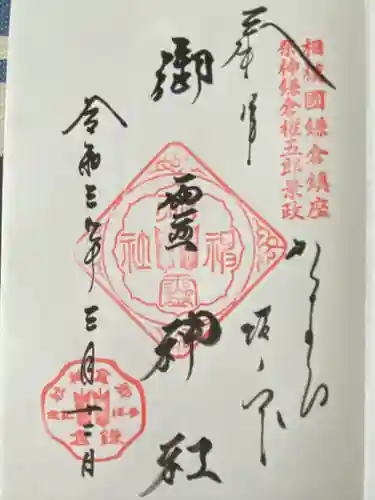 相模國鎌倉鎮座
祭神鎌倉権五郎景政
奉拝
かまくら
坂ノ下
御霊神社
令和三年三月十二日